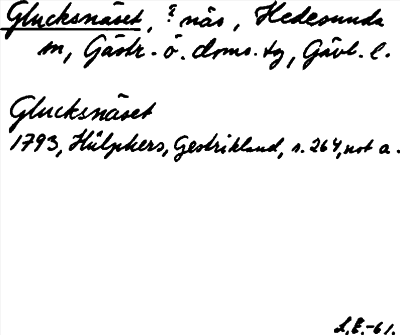 Glucksnäset, ? näs, Hedesunda
sn, Gästr. ö. doms. tg, Gävl. l.
Glucksnäset
1793, Hülphers, Gestrikland, s. 264, not a.
L.E.-61.